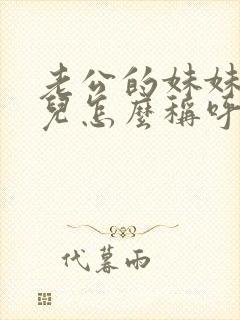 老公的妹妹
兒怎麼稱呼
代暮雨